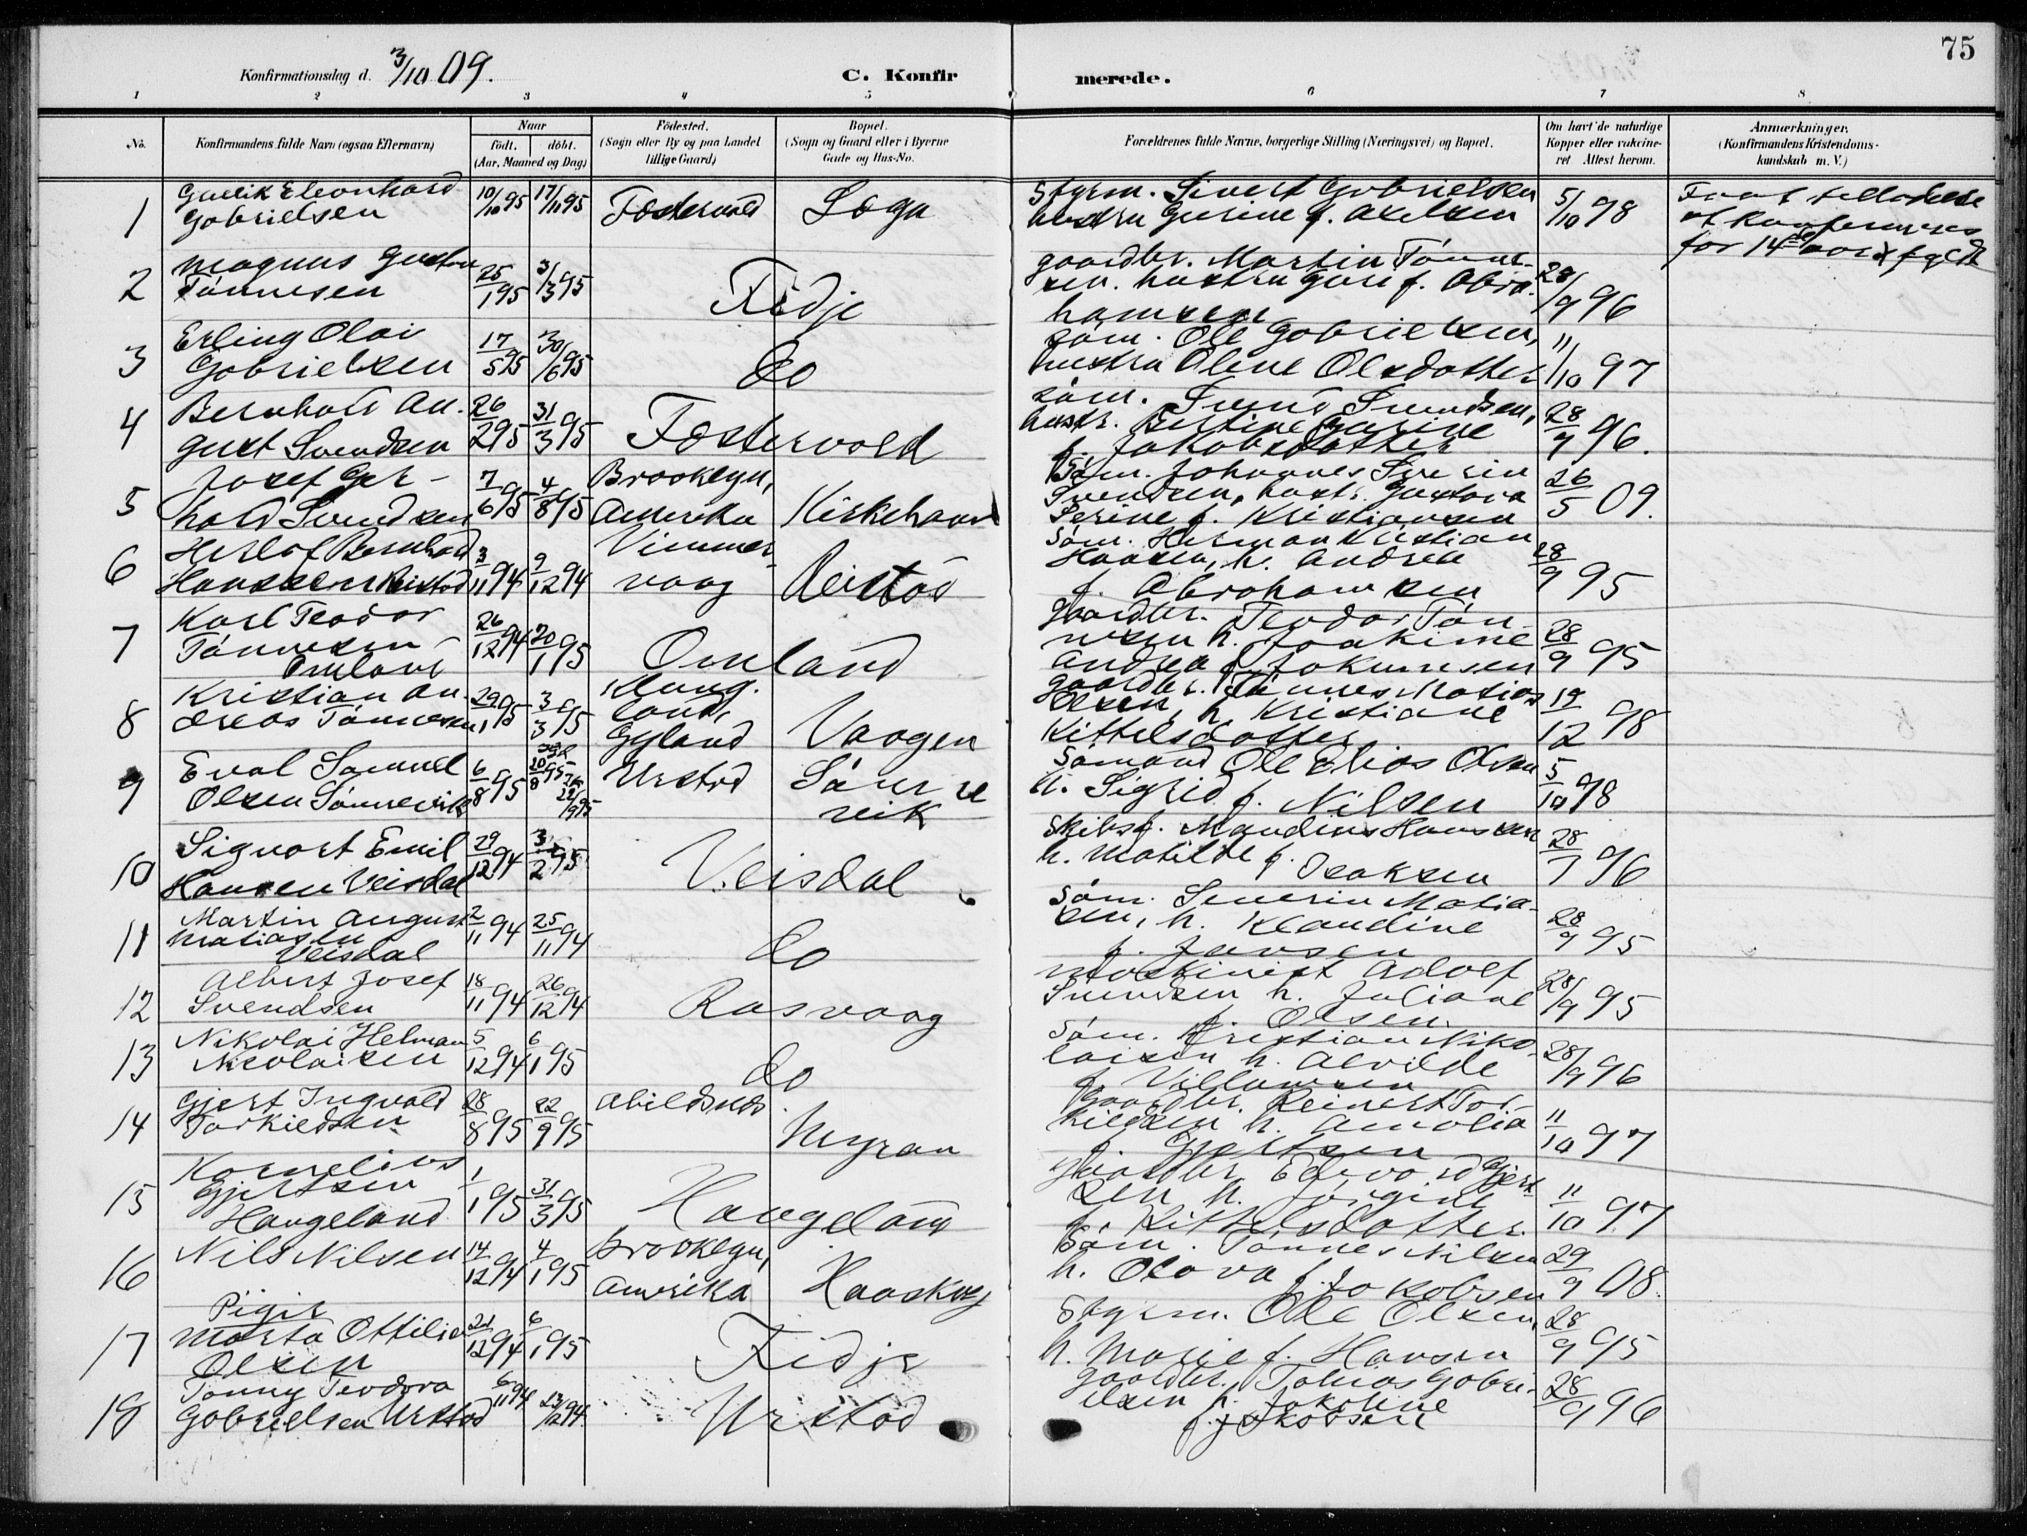 75
Konfirmationsdag d. 3/10 09.
C. Konfirmerede.
1 2 3 4 5 6 7 8
No.
Konfirmandens fulde Navn (ogsaa Efternavn)
Naar
født. døbt.
(Aar, Maaned og Dag)
Fødested.
(Sogn eller By og paa Landet
tillige Gaard)
Bopæl.
(Sogn og Gaard eller i Byerne
Gade og Hus-No.
Forældrenes fulde Navne, borgerlige Stilling (Næringsvei) og Bopæl.
Om havt de naturlige
Kopper eller vakcine-
ret Attest herom.
Anmærkninger.
(Konfirmandens Kristendoms-
kundskab m. V.)
1 Gullik Eleonhard
Gabrielsen
10/10 95 17/11 95 Fostervold Loga
Styrm. Sivert Gabrielsen
hustru Gurine f. Axelsen
5/10 98
Faat tilladelse
at konfirmeres
før 14 de aar fyldt
2 Magnus Gustav
Tønnesen
25/1 95 3/3 95 Fidje
gaardbr. Martin Tønne-
sen. hustru Gure f. Abra-
hamsen
28/9 96
3 Erling Olai
Gabrielsen
17/5 95 30/6 95 do
søm. Ole Gabrielsen,
hustru Oline Olsdotter
11/10 97
4 Bernhard Au-
gust Svendsen
26/2 95 31/3 95 Fostervold
søm. Svend Svendsen,
hustr. Bertine Gurine
f. Jakobsdotter
28/9 96.
5 Josef Ger-
hald Svendsen
7/6 95 4/8 95 Brooklyn,
Amerika Kirkehavn
Søm. Johannes Severin
Svendsen, hustr. Gustava
Serine f. Kristiansen
26/5 09.
6 Herlof Bernhard
Hanssen Reistad
3/11 94 9/12 94 Vimmer-
vaag Reistad
Søm. Herman Kristian
Hansen, h. Andrea
f. Abrahamsen
28/9 95
7 Karl Teodor
Tønnesen
Omland
26/12 94 20/1 95 Omland
gaardbr. Teodor Tøn-
nesen h. Joakime
Andrea f. Jokumsen
28/9 95
8 Kristian An-
dreas Tønnesen
29/1 95 3/3 95
land,
Gyland Vaagen
gaardbr. Tønnes Matias
Olsen, h. Kristiane
Kittelsdotter
19/12 98
9 Eval Samuel
Olsen Sønnevik
6/8 95 Urstad Sønne
vik
Sømand Ole Elias Olsen
h. Sigrid f. Nilsen
5/10 98
10 Sigvart Emil
Hansen Veisdal
29/12 94 3/2 95 Veisdal
Skibsf. Maudius Hanssen
h. Matilde f.
Isaksen
28/9 96
11 Martin August
Matiassen
Veisdal
2/11 94 25/11 94 do
Søm. Severin Matia-
sen, h. Klaudine
f. Jansen
28/9 95
12 Albert Josef
Svendsen
18/11 94 26/12 94 Rasvaag
Maskinist Adolf
Svendsen h. Juliane
f. Olsen
28/9 95
13 Nikolai Helman
Nicolaisen
5/12 94 6/1 95 do
Søm. Kristian Niko-
laisen h. Alvilde
f. Villumsen
28/9 96
14 Gjert Ingvald
Torkildsen
28/8 95 22/9 95 Abildsnes. Myran
Gaardbr. Reinert Tor-
kildsen h. Amalia
f. Gjertsen
11/10 97
15 Kornelius
Gjertsen
Haugeland
1/1 95 31/3 95 Haugeland
gaardbr. Edevard Gjert-
sen h. Jørgine
f. Kittelsdotter
11/10 97
16 Nils Nilsen
14/12 94 4/1 95 Brooklyn,
Amerika Haaskog
Søm. Tønnes Nilsen
h. Olava f. Jakobsen
29/9 08.
Piger
17 Marta Ottilie
Olsen
21/12 94 6/1 95 Fidje
Styrm. Ole Olsen,
h. Marie f. Hansen
28/9 95
18 Tonny Teodora
Gabrielsen Urstad
6/11 94 13/12 94. Urstad
Gaardbr. Tobias Gabri-
elsen h. Jakobine
f. Jakobsen
28/9 96